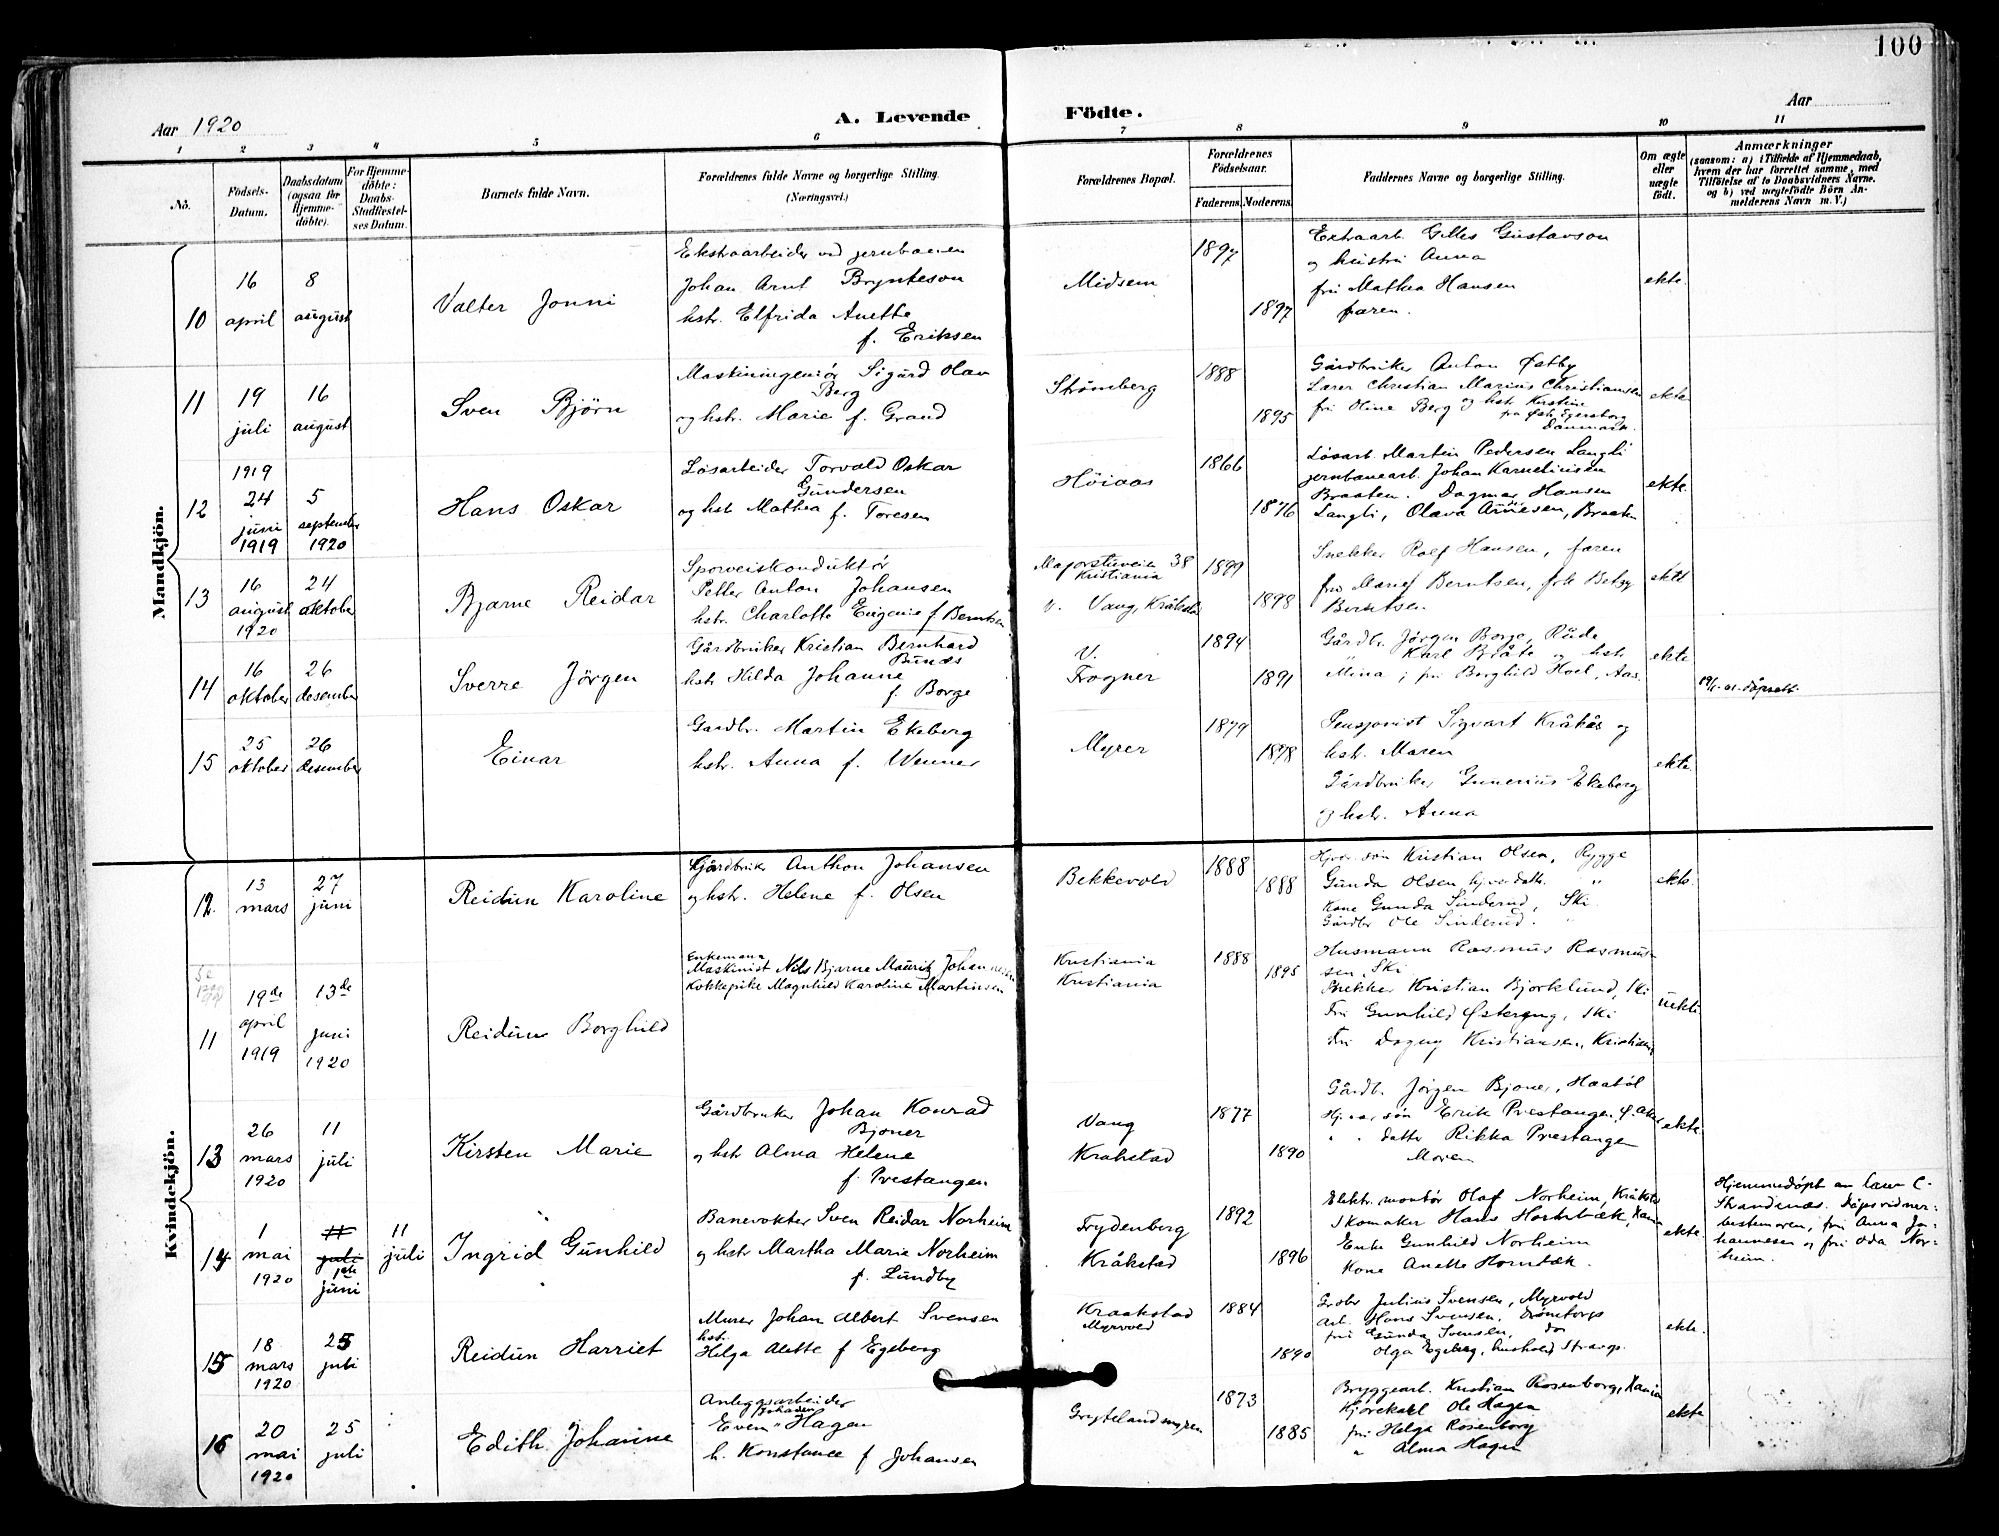 100
Aar 1920
A. Levende
Födte.
Aar
1 2 3 4 5 6 7 8 9 10 11
No.
Födsels-Datum.
Daabsdatum (ogsaa for Hjemmedöbte).
For Hjemmedöbte: Daabs-Stadfestelses Datum.
Barnets fulde Navn.
Forældrenes fulde Navne og borgerlige Stilling.
(Næringsvei.)
Forældrenes Bopæl.
Forældrenes Födselsaar.
Faderens. Moderens.
Faddernes Navne og borgerlige Stilling.
Om ægte eller uægte födt.
Anmærkninger
(saasom: a) i Tilfælde af Hjemmedaab,
hvem der har forrettet samme, med
Tilföielse af to Daabsvidners Navne.
og b) ved uegtefödte Börn Anmelderens Navn m. V.)
Mandkjön.
10
16 april
8 august
Valter Jonni
Ekstraarbeider ved jernbanen
Johan Arnt Brynteson
hstr. Elfrida Anette
f. Eriksen
Midsem
1897
1897
Extraarb. Gilles Gustavson
og hustru Anna
fru Mathea Hansen
faren.
ekte.
11
19 juli
16 august
Sven Bjørn
Maskiningeniør Sigurd Olav
Berg
og hstr. Marie f. Grand
Strømberg
1888
1895
Gårdbruker Anton Østby
Lærer Christian Marius Christiansen
fru Oline Berg og hstr. Kirstine
pa Østr. Egersborg
Danmark.
ekte
12
1919
24 juni 1919
5 september 1920
Hans Oskar
Løsarbeider Torvald Oskar
Gundersen
og hstr Mathea f. Toresen
Høiaas
1866
1876
Løsarb. Martin Pedersen Langli
jernbanearb. Johan Karneliusen
Braaten. Dagmar Hansen
Langli, Olava Arnesen, Braaten
ekte.
13
16 august 1920
24 oktober
Bjarne Reidar
Sporveiskonduktør
Petter Anton Johansen
hstr. Charlotte Eugenie f. Berntsen
Majorstuveien 38
Kristiania
v. Vang, Kråkstad
1899
1898
Snekker Rolf Hansen, faren
fru Marie Berntsen, frk Betsy
Berntsen
ekte
14
16 oktober
26 desember
Sverre Jörgen
Gårdbruker Kristian Bernhard
Bunæs
hstr Hilda Johanne
f. Borge
V.
Frogner
1894
1891
Gårdbr. Jørgen Borge, Råde
Karl Bråte og hstr.
Mina; fru Borghild Hoel, Aas.
ekte
15
25 oktober
26 desember
Einar
Gardbr. Martin Ekeberg
hstr. Anna f. Wenner
Myrer
1879
1878
Pensjonist Sigvart Kråkås og
hstr. Maren
Gårdbruker Gunerius Ekeberg
og hstr. Anna
ekte.
Kvindekjön.
12
13 mars
27 juni
Reidun Karoline
Gjårdbruk Anthon Johansen
og hstr. Helene f. Olsen
Bekkevold
1888
1888
Hjv. søn Kristian Olsen, Rygge
Gunda Olsen hjv. datter "
Kone Gunda Sinderud, Ski
Gårdbr Ole Sinderud. "
ekte.
11
19de april 1919
13de juni 1920
Reidun Borghild
Enkemann
Maskinist Nils Bjarne Mauritz Johannesen
Kokkepike Magnhild Karoline Martinsen
Kristiania
Kristiania
1888
1895
Husmann Rasmus Rasmus-
sen, Ski
Snekker Kristian Bjorklund, Ski
Fru Gunhild Østereng, Ski
Fru Dagny Kristiansen, Kristiania
uekte.
13
26 mars 1920
11 juli
Kirsten Marie
Gårdbruker Johan Konrad
Bjoner
og hstr Alma Helene
f. Prestangen
Vang
Kråkstad
1877
1890
Gårdb. Jørgen Bjoner, Haabøl
Hj.va. søn Erik Prestangen,
" " datter Rikka Prestangen
Moren
ekte.
14
1 mai 1920
11 juli
juni
11 juli
Ingrid Gunhild
Banevokter Sven Reidar Norheim
og hstr Martha Marie Norheim
f. Lundby
Frydenberg
Kråkstad
1892
1896
Elektr. montør Olaf Norheim, Kråkstad
Skomaker Hans Hornbæk, Xania
Enke Gunhild Norheim
Kone Anette Hornbæk.
ekte.
Hjemmedöpt av lærer C.
Strandenæs. Dåpsvidner:
bestemoren, fru Anna Jo-
hannesen og fru Oda Nor-
heim.
15
18 mars 1920
25 juli
Reidun Harriet
Murer Johan Albert Svensen
hstr.
Helga Alette f Egeberg
Kraakstad
Myrvold
1884
1890
Julius Svensen, Myrvold
Arb. Hans Svensen,
fru Gunda Svensen, do
Olga Egeberg,
ekte.
16
20 mai 1920
25 juli
Edith Johanne
Anleggsarbeider
Even Johaden Hagen
h. Konstance f Johansen
Grytelandsmyren
1873
1885
Bryggearb. Kristian Rosenborg, Xania
Kjørekarl Ole Hagen
fru Helga Rosenborg
" Alma Hagen
ekte